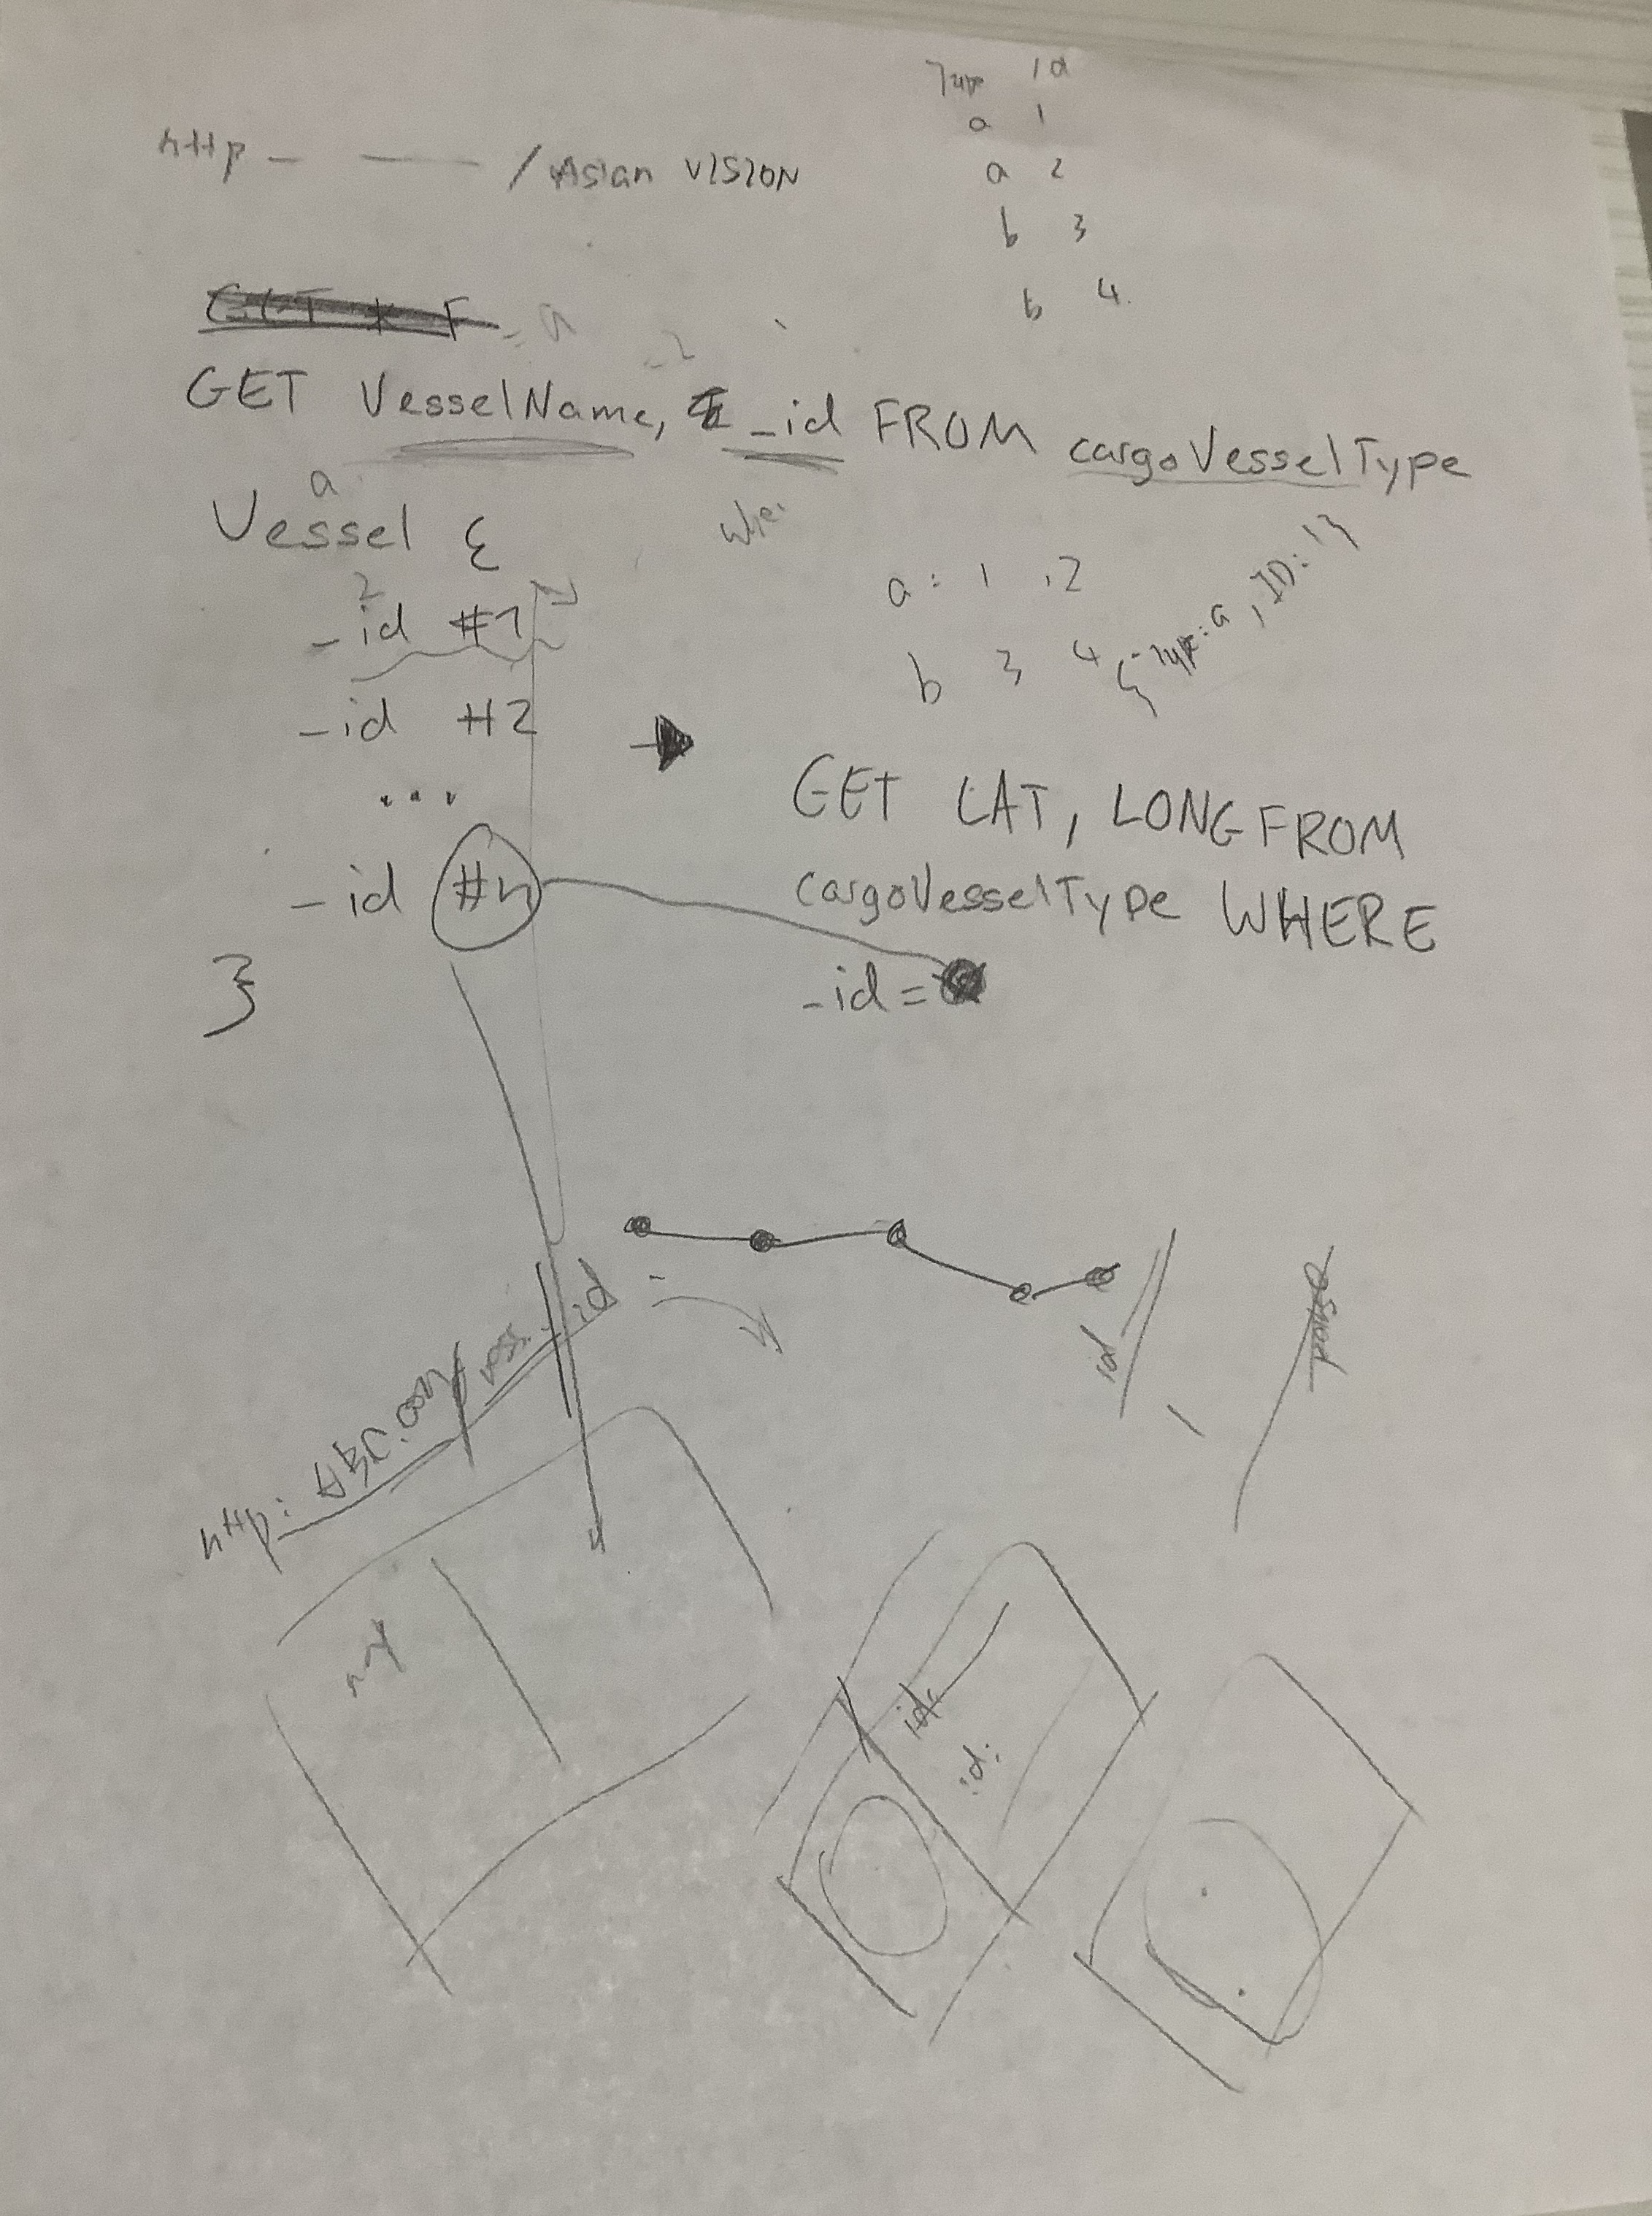 Type id
a 1
a 2
b 3
b 4.
http - — / Asian VISION
GET * F
GET VesselName, _id FROM cargoVesselType
a
Vessel {
2
_id #1
_id #2
...
_id #n
}
Whe
a : 1 , 2
b 3 4
{ Type: a, ID: 1}
GET LAT, LONG FROM
cargoVesselType WHERE
_id =
http: ABC.com/ _id =
id
id
id